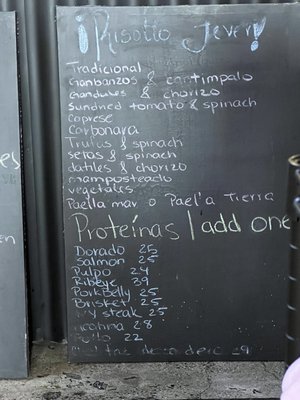 ¡Risotto Fever!
Tradicional
Garbanzos & cantimpalo
Gandules & chorizo
Sundried tomato & spinach
Caprese
Carbonara
Trufus & spinach
setas & spinach
datiles & chorizo
mamposteado
vegetales
Paella mar o Pael'a Tierra
Proteínas | add one
Dorado 25
Salmon 25
Pulpo 24
Ribeye 39
Pork Belly 25
Brisket 25
NY steak 25
28
22
es
en